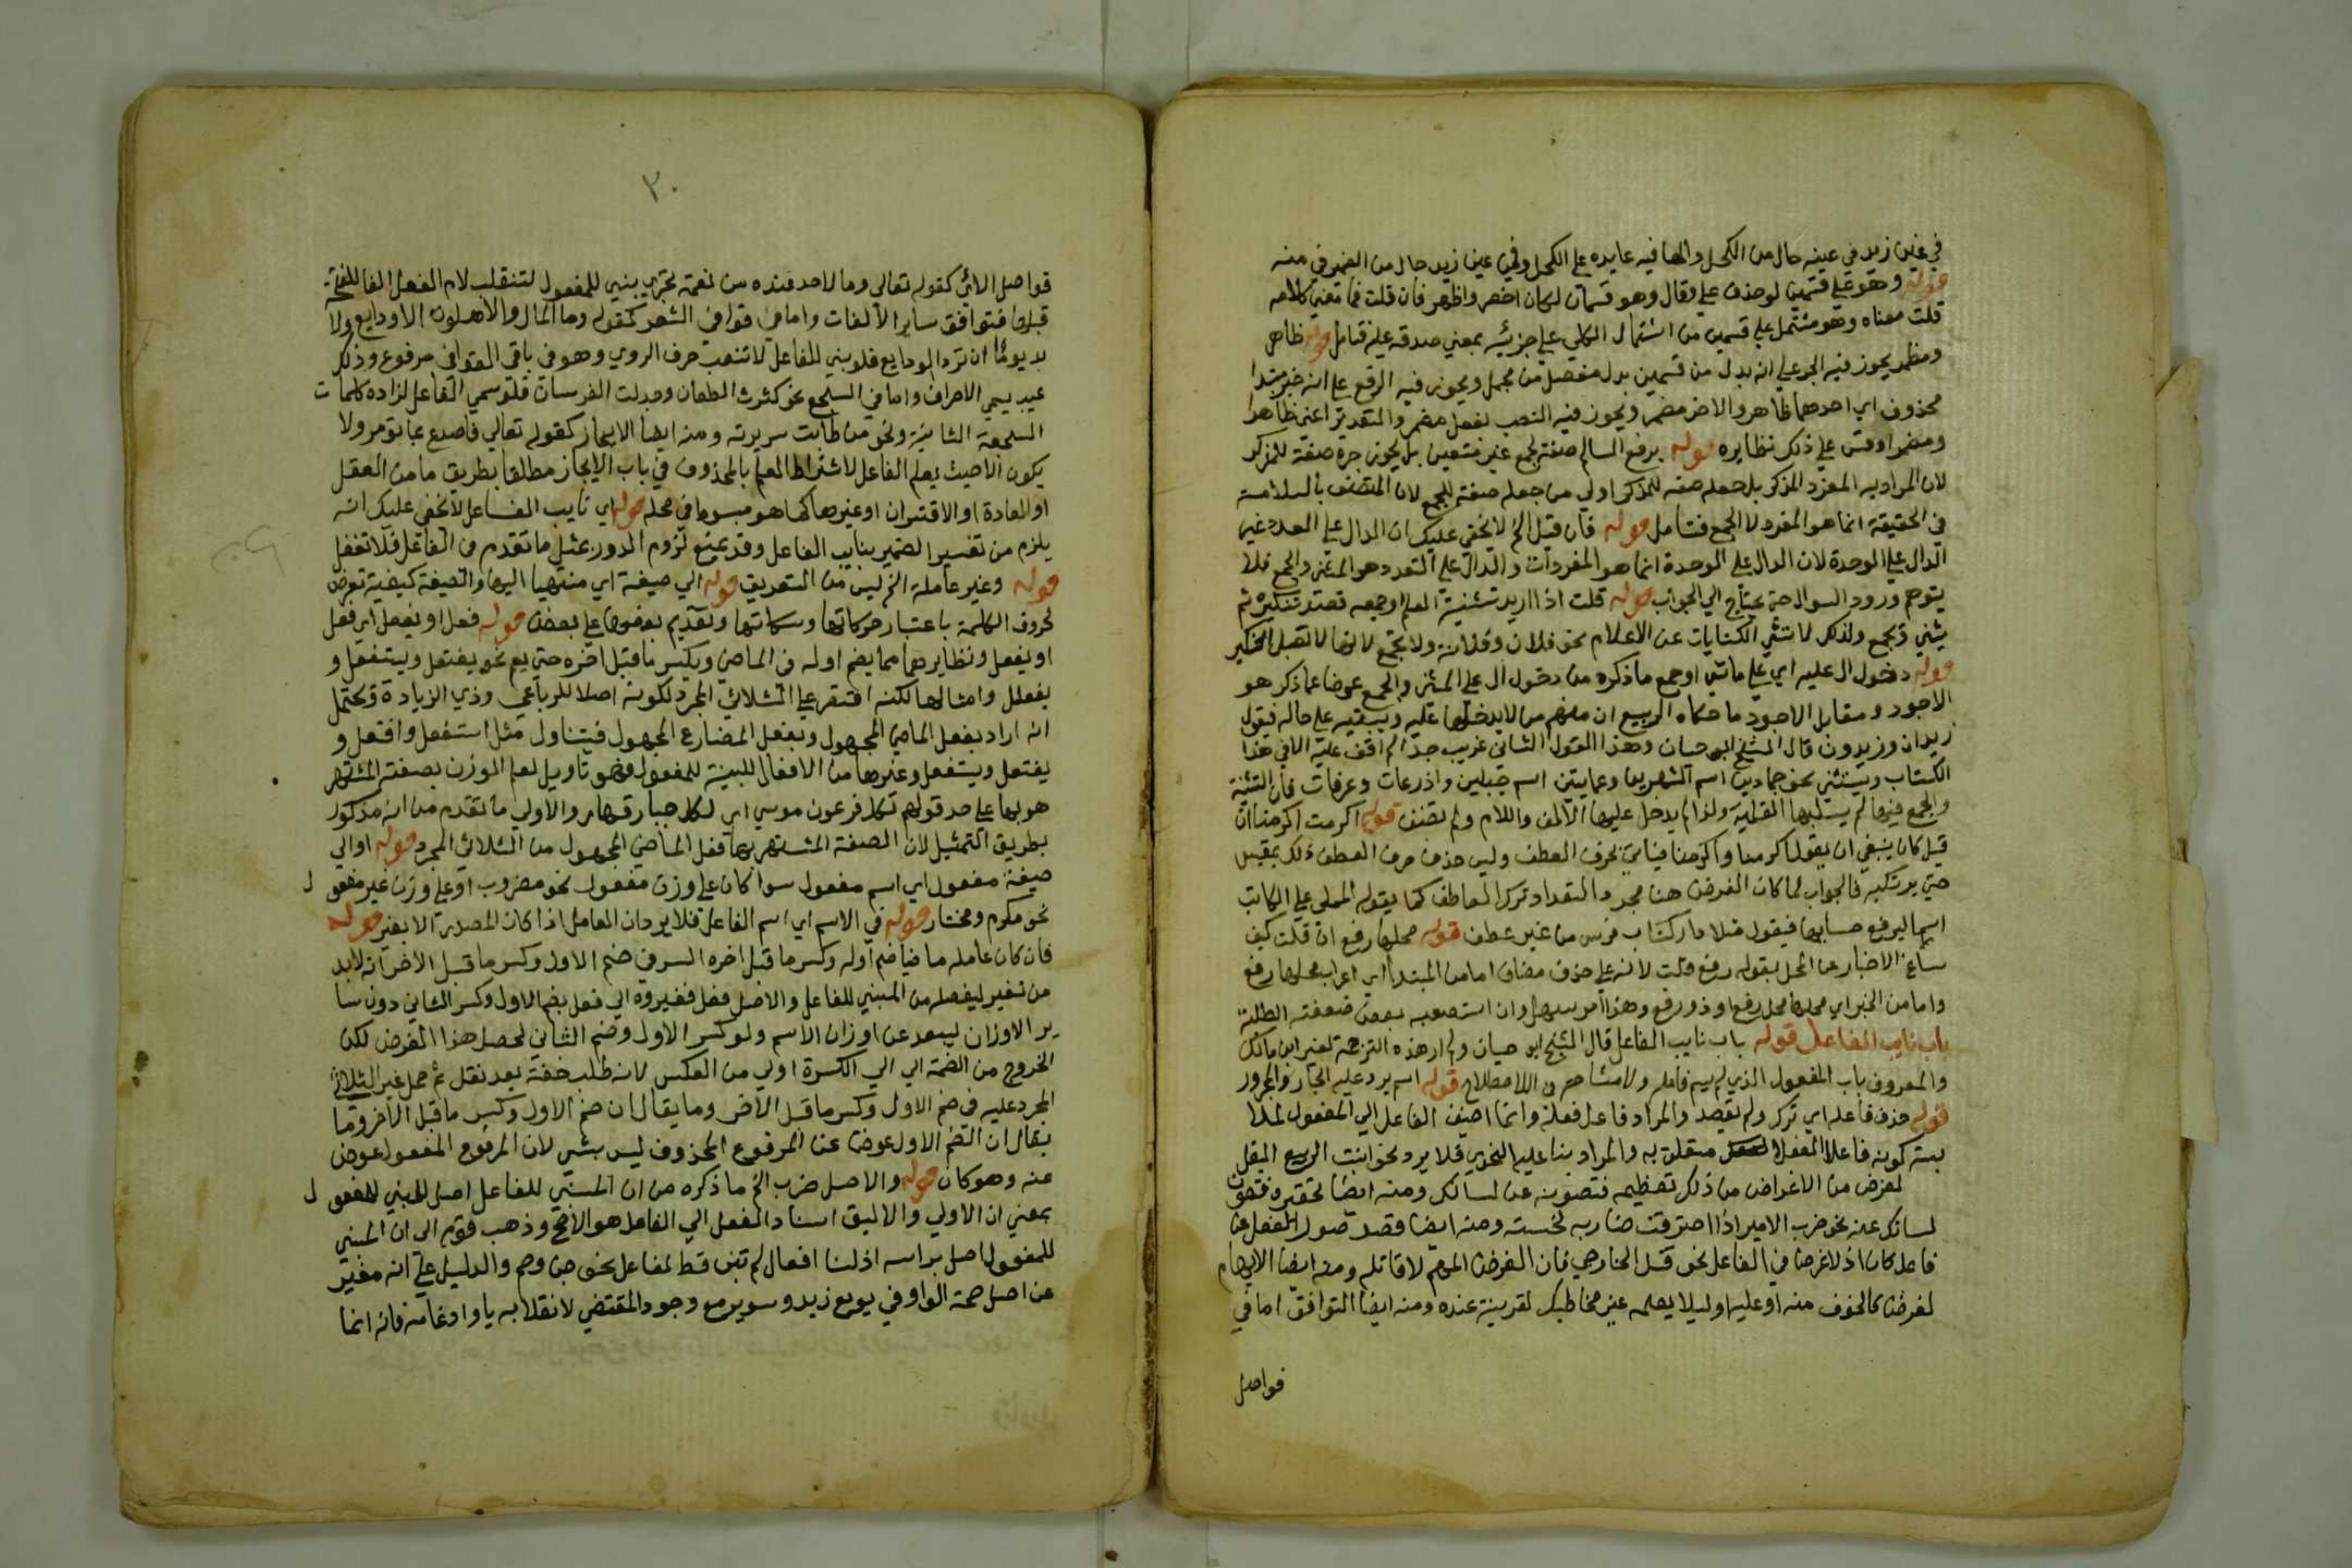 في عين زيد في عينه حال من الكحل والها فيه عايده على الكحل وفي عين زيد حال من الضمير في منه
قوله وهو على قسمين لو حذف على وقال وهو قسمان لكان اخصر واظهر فان قلت فما معنى كلامه
قلت معناه وهو مشتمل على قسمين من اشتمال الكلي على جزئيه بمعنى صدقه عليه فتامل قوله ظاهر
ومضمر يجوز فيه الجر على انه بدل من قسمين بدل مفصل من مجمل ويجوز فيه الرفع على انه خبر مبتدا
محذوف اي احدهما ظاهر والاخر مضمر ويجوز فيه النصب بفعل مضمر والتقدير اعني ظاهرا
ومضمرا وقس على ذلك نظايره قوله برفع السالم صفة لجمع غير متعين بل يجوز جره صفة للمذكر
لان المراد به المفرد المذكر بل جعله صفة للمذكر اولى من جعله صفة للجمع لان المتصف بالسلامة
في الحقيقة انما هو المفرد لا الجمع فتامل قوله فان قيل الخ لا يخفى عليك ان الدال على العدد غير
الدال على الوحدة لان الدال على الوحدة انما هو المفردات والدال على التعدد هو المثنى والجمع فلا
يتوهم ورود السوال حتى يحتاج الى الجواب قوله قلت اذا اريد تثنية العلم او جمعه قصد تنكيره ثم
يثنى ويجمع ولذلك لا تثنى الكنايات عن الاعلام نحو فلان وفلانة ولا تجمع لانها لا تقبل التنكير
قوله دخول ال عليه اي على ما ثني او جمع ما ذكره من دخول ال على المثنى والجمع عوضا عما ذكر هو
الاجود ومقابل الاجود ما حكاه البديع ان منهم من لا يدخلها عليه ويبقيه على حاله فيقول
زيدان وزيدون قال الشيخ ابو حيان وهذا القول الثاني غريب جدا لم اقف عليه الا في هذا
الكتاب ويستثنى نحو جمادين اسم الشهرين وعمايتين اسم جبلين واذرعات وعرفات فان التثنية
والجمع فيها لم يسلبها العلمية ولذا لم يدخل عليها الالف واللام ولم تضف قوله اكرمت اكرمنا ان
قيل كان ينبغي ان يقول اكرمنا واكرمنا فياتي بحرف العطف وليس حذف حرف العطف ذلك بمقيس
حتى يرتكبه فالجواب لما كان الغرض هنا مجرد التعداد ترك العاطف كما يقوله المملى على الكاتب
اسما ليرفع حسابها فيقول مثلا دار كتاب فرس من غير عطف قوله محلها رفع ان قلت كيف
ساغ الاخبار عن المحل بقوله رفع قلت لانه على حذف مضاف اما من المبتدا اي اعراب محلها رفع
واما من الخبر اي محلها محل رفع او ذو رفع وهذا امر سهل وان استصعبه بعض ضعفة الطلبة
باب نايب الفاعل قوله باب نايب الفاعل قال الشيخ ابو حيان ولم ار هذه الترجمة لغير ابن مالك
والمعروف باب المفعول الذي لم يسم فاعله ولا مشاحة في الاصطلاح قوله اسم يرد عليه الجار والمجرور
قوله حذف فاعله اي ترك ولم يقصد والمراد فاعل فعله وانما اضيف الفاعل الى المفعول لملا
بسته كونه فاعلا لفعل متعلق به والمراد بنا عليه النحوي فلا يرد نحو انبت الربيع البقل
لغرض من الاغراض من ذلك تعظيمه فتصونه عن لسانك ومنه ايضا تحقيره فتصون
لسانك عنه نحو ضرب الامير اذا احترقت ضاربه لخسته ومنه ايضا قصد صدور الفعل من
فاعل كان اذ لا غرض في الفاعل نحو قتل الخارجي فان الغرض المهم لا قاتله ومنه ايضا الابهام
لغرض كالخوف منه او عليه او ليلا يعلمه غير مخاطبك لقرينة عنده ومنه ايضا التوافق اما في
فواصل
٣٠
فواصل الآي كقوله تعالى وما لاحد عنده من نعمة تجزى بني للمفعول لتنقلب لام الفعل الفا للفتحة
قبلها فتوافق ساير الالفات واما في قوافي الشعر كقوله وما المال والاهلون الا ودايع ولا
بد يوما ان ترد الودايع فلو بني للفاعل لانتصب حرف الروي وهو في باقي القوافي مرفوع وذلك
عيب يسمى الاصراف واما في السجع نحو كثرت الطعان وجدلت الفرسان فلو سمي الفاعل لزاده كلمات
السجعة الثانية ونحو من طابت سريرته ومنه ايضا الايجاز كقوله تعالى فاصدع بما تؤمر ولا
يكون الا حيث يعلم الفاعل لاشتراط العلم بالمحذوف في باب الايجاز مطلقا بطريق ما من العقل
او العادة او الاقتران او غيرها كما هو مبسوط في محله قوله اي نايب الفاعل لا يخفى عليك انه
يلزم من تفسير الضمير بنايب الفاعل وقد يمنع لزوم الدور بمثل ما تقدم في الفاعل فلا تغفل
قوله وغير عامله الخ ليس من التعريف قوله الى صيغة اي منتهيا اليها والصيغة كيفية تعرض
لحروف الكلمة باعتبار حركاتها وسكناتها وتقديم بعضها على بعض قوله فعل او يفعل اي فعل
او يفعل ونظايرهما مما يضم اوله في الماضي ويكسر ما قبل اخره حتى يعم نحو يفتعل ويستفعل و
يفعلل وامثالها لكنه اقتصر على الثلاثي المجرد لكونه اصلا للرباعي وذي الزيادة ويحتمل
انه اراد بفعل الماضي المجهول وبيفعل المضارع المجهول فيتناول مثل استفعل وافتعل و
يفتعل ويستفعل وغيرها من الافعال المبنية للمفعول وهو تاويل لعلم الوزن بصفته المشتهر
هو بها على حد قولهم لكل فرعون موسى اي لكل جبار قهار والاولى ما تقدم من انه مذكور
بطريق التمثيل لان الصفة المشتهر بها فعل الماضي المجهول من الثلاثي المجرد قوله او الى
صيغة مفعول اي اسم مفعول سوا كان على وزن مفعول نحو مضروب او على وزن غير مفعول
نحو مكرم ومختار قوله في الاسم اي اسم الفاعل فلا يرد ان العامل اذا كان المصدر لا يغير قوله
فان كان عامله ماضيا ضم اوله وكسر ما قبل اخره السر في ضم الاول وكسر ما قبل الاخر انه لا بد
من تغير ليفصله من المبني للفاعل والاصل فعل فغيروه الى فعل بضم الاول وكسر الثاني دون سا
ير الاوزان ليبعد عن اوزان الاسم ولو كسر الاول وضم الثاني لحصل هذا الغرض لكن
الخروج من الضمة الى الكسرة اولى من العكس لانه طلب خفة بعد ثقل ثم حمل غير الثلاثي
المجرد عليه في ضم الاول وكسر ما قبل الاخر وما يقال ان ضم الاول وكسر ما قبل الاخر وما
يقال ان الضم الاول عوض عن المرفوع المحذوف ليس بشي لان المرفوع المفعول عوض
عنه وهو كان قوله والاصل ضرب الخ ما ذكره من ان المبني للفاعل اصل للمبني للمفعول
بمعنى ان الاولى والاليق اسناد الفعل الى الفاعل هو الاصح وذهب قوم الى ان المبني
للمفعول اصل براسه اذ لنا افعال لم تبن قط لفاعل نحو جن وحم والدليل على انه مغير
عن اصل صحة الواو في بويع زيد وسوير مع وجود المقتضي لانقلابه يا وادغامه فانه انما